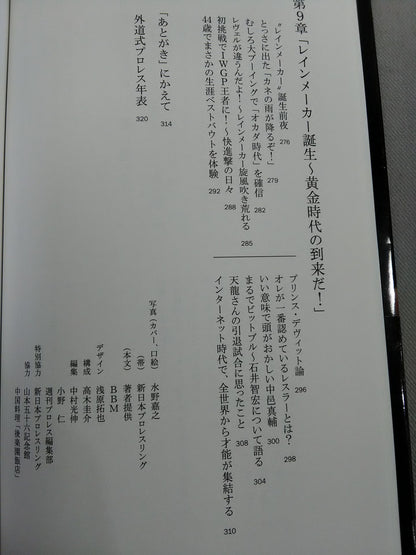 第9章「レインメーカー誕生～黄金時代の到来だ！」
〝レインメーカー〟誕生前夜 276
とっさに出た「カネの雨が降るぞ！」 279
むしろ大ブーイングで「オカダ時代」を確信 282
レヴェルが違うんだよ！～レインメーカー旋風吹き荒れる 285
初挑戦でIWGP王者に！～快進撃の日々 288
44歳でまさかの生涯ベストバウトを体験 292
プリンス・デヴィット論 296
オレが一番認めているレスラーとは？ 298
いい意味で頭がおかしい中邑真輔 300
まるでピットブル～石井智宏について語る 304
天龍さんの引退試合に思ったこと 308
インターネット時代で、全世界から才能が集結する 310
「あとがき」にかえて 314
外道式プロレス年表 320
写真（カバー、口絵） 水野嘉之
（帯） 新日本プロレスリング
（本文） 著者提供
BBM
デザイン 浅原拓也
構成 高木圭介
編集 中村光伸
小野 仁
特別協力 週刊プロレス編集部
新日本プロレスリング
協力 山本五十六記念館
中国料理「後楽園飯店」